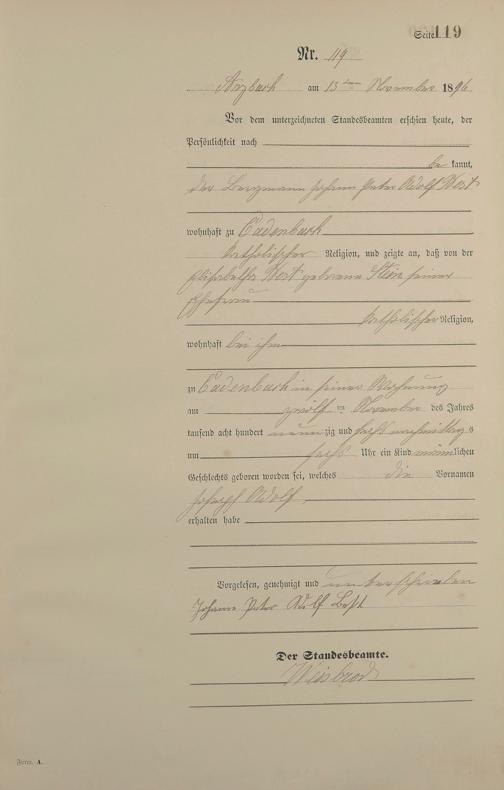 Seite 119
Nr. 119
Arzbach am 13ten November 1896
Vor dem unterzeichneten Standesbeamten erschien heute, der
Persönlichkeit nach
be kannt,
der Bergmann Johann Peter Adolf Best
wohnhaft zu Cadenbach
katholischer Religion, und zeigte an, daß von der
Elisabetha Best geborene Stein seiner
Ehefrau
katholischer Religion,
wohnhaft bei ihm
zu Cadenbach in seiner Wohnung
am zwölf ten November des Jahres
tausend acht hundert neun zig und sechs nachmittags
um sechs Uhr ein Kind männlichen
Geschlechts geboren worden sei, welches die Vornamen
Joseph Adolf
erhalten habe
Vorgelesen, genehmigt und unterschrieben
Johann Peter Adolf Best
Der Standesbeamte.
Weisbrod
Form. A.